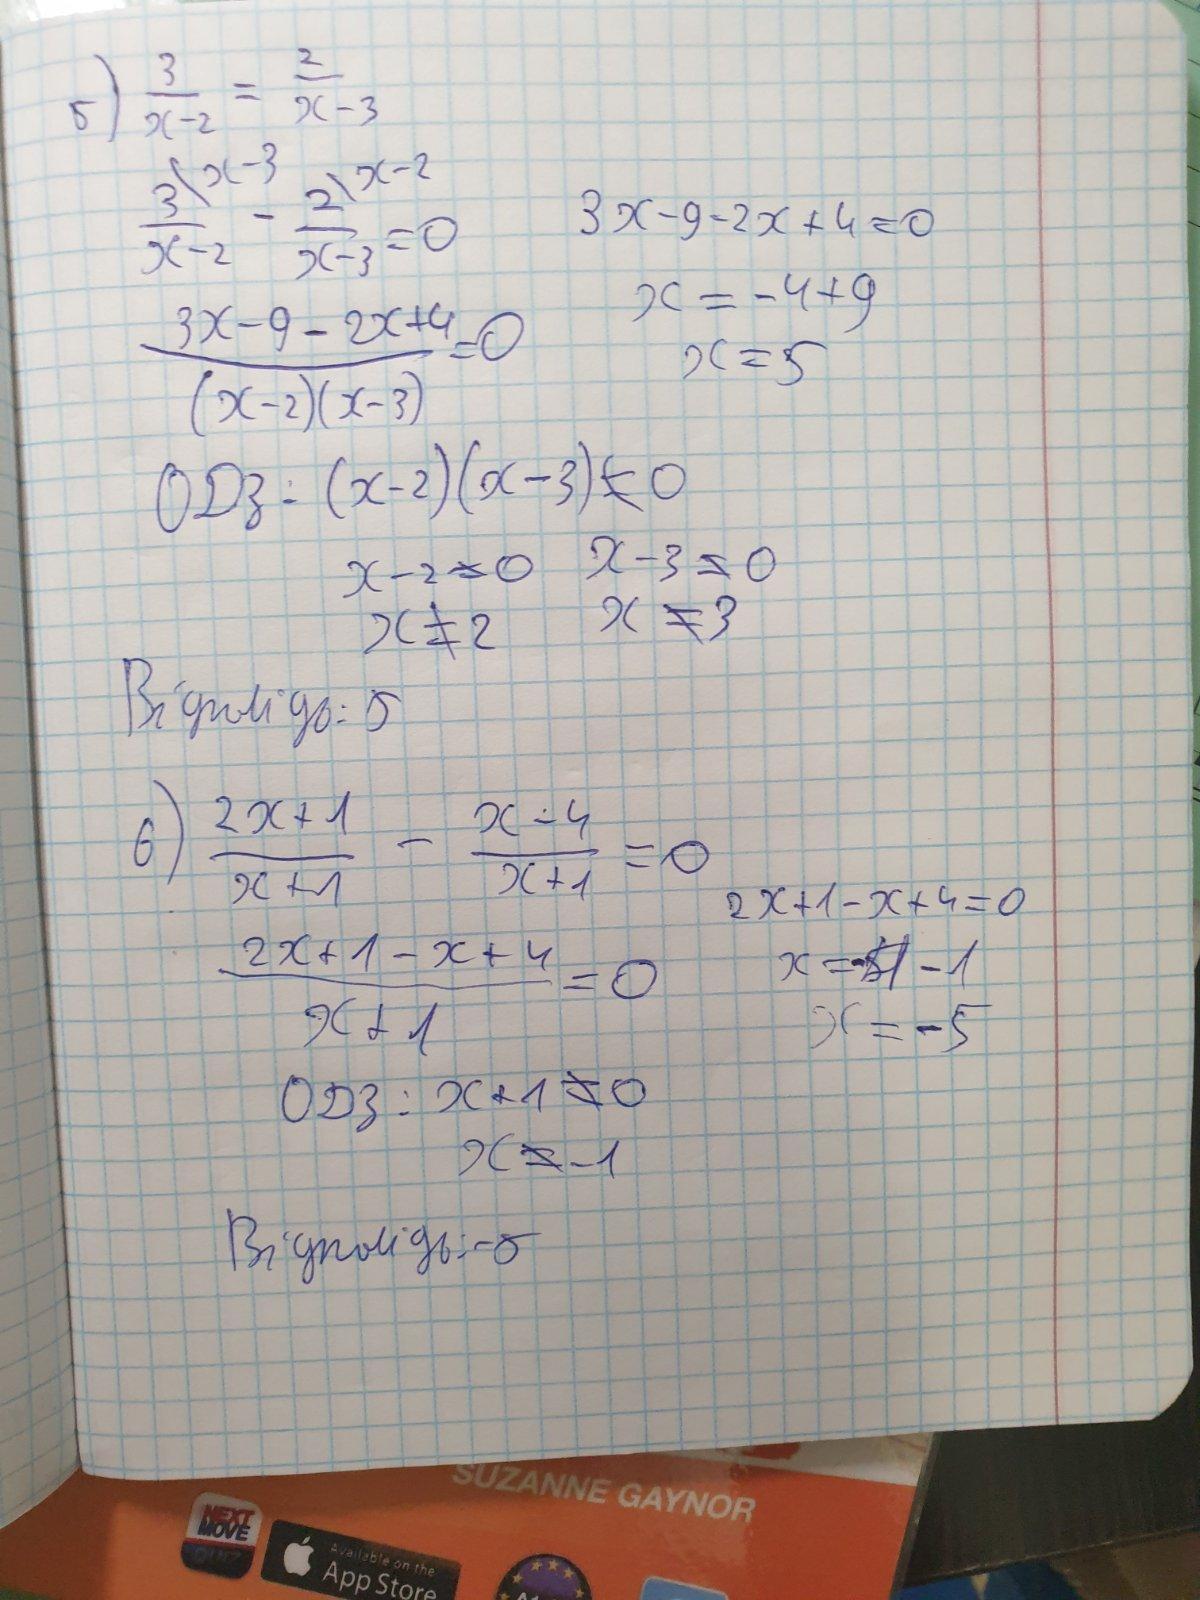 5) 3/(x-2) = 2/(x-3)
3\x-3/(x-2) - 2\x-2/(x-3) = 0
(3x-9-2x+4)/((x-2)(x-3)) = 0
3x-9-2x+4=0
x = -4+9
x = 5
ОДЗ: (x-2)(x-3)≠0
x-2≠0 x-3≠0
x≠2 x≠3
Відповідь: 5
6) (2x+1)/(x+1) - (x-4)/(x+1) = 0
(2x+1-x+4)/(x+1) = 0
2x+1-x+4=0
x = -4-1
x = -5
ОДЗ: x+1≠0
x≠-1
Відповідь: -5
SUZANNE GAYNOR
NEXT MOVE
QUIZ
Available on the
App Store